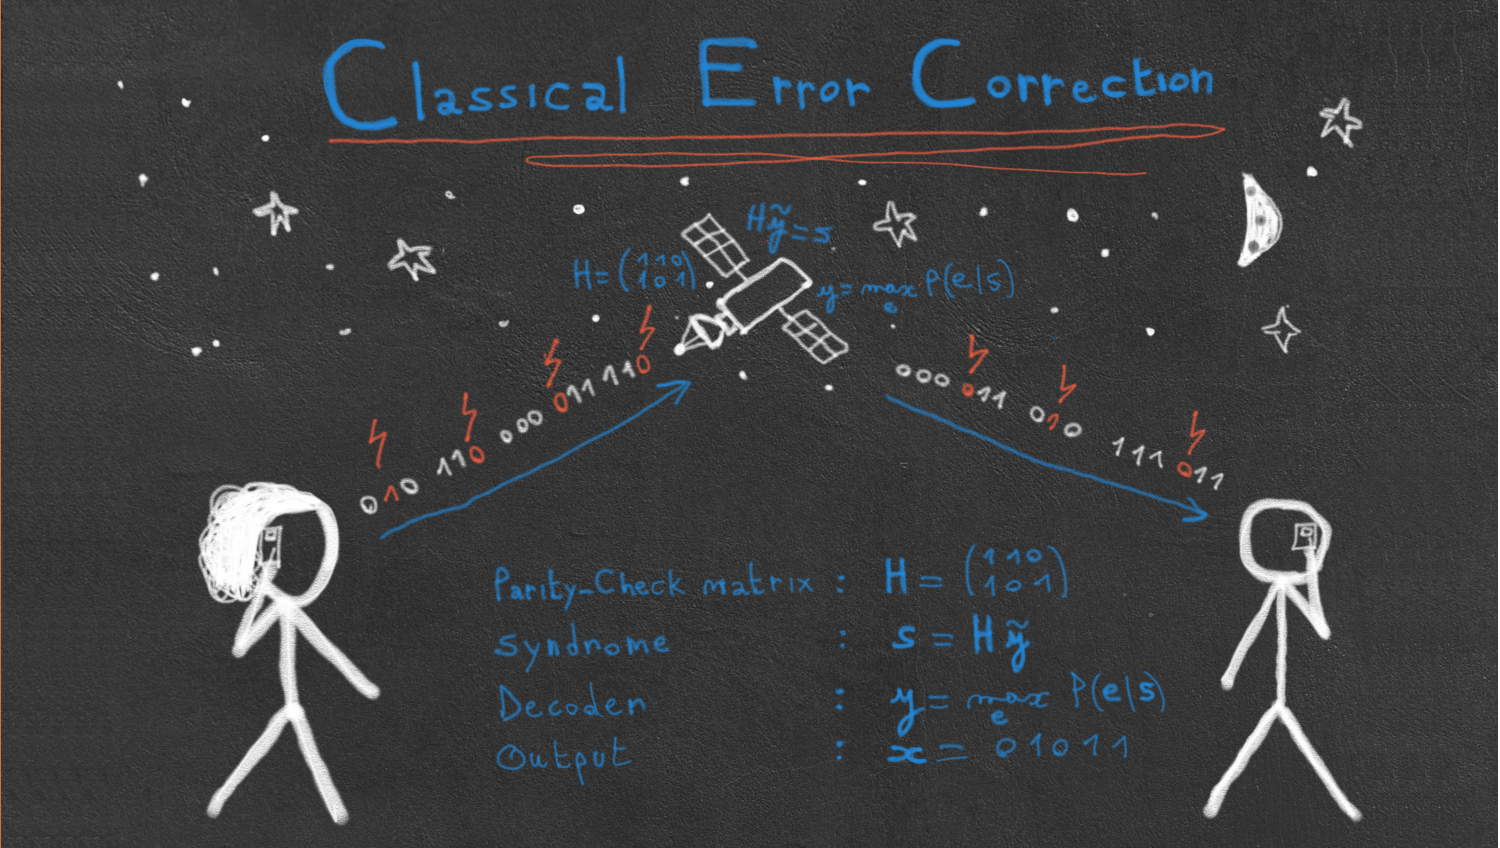 Classical Error Correction
Hỹ = s
H = (1 1 0
1 0 1)
y = max P(e|s)
e
010 110 000 011 110
000 011 010 111 011
Parity-Check matrix : H = (1 1 0
1 0 1)
Syndrome : s = Hỹ
Decoder : y = max P(e|s)
e
Output : x = 01011